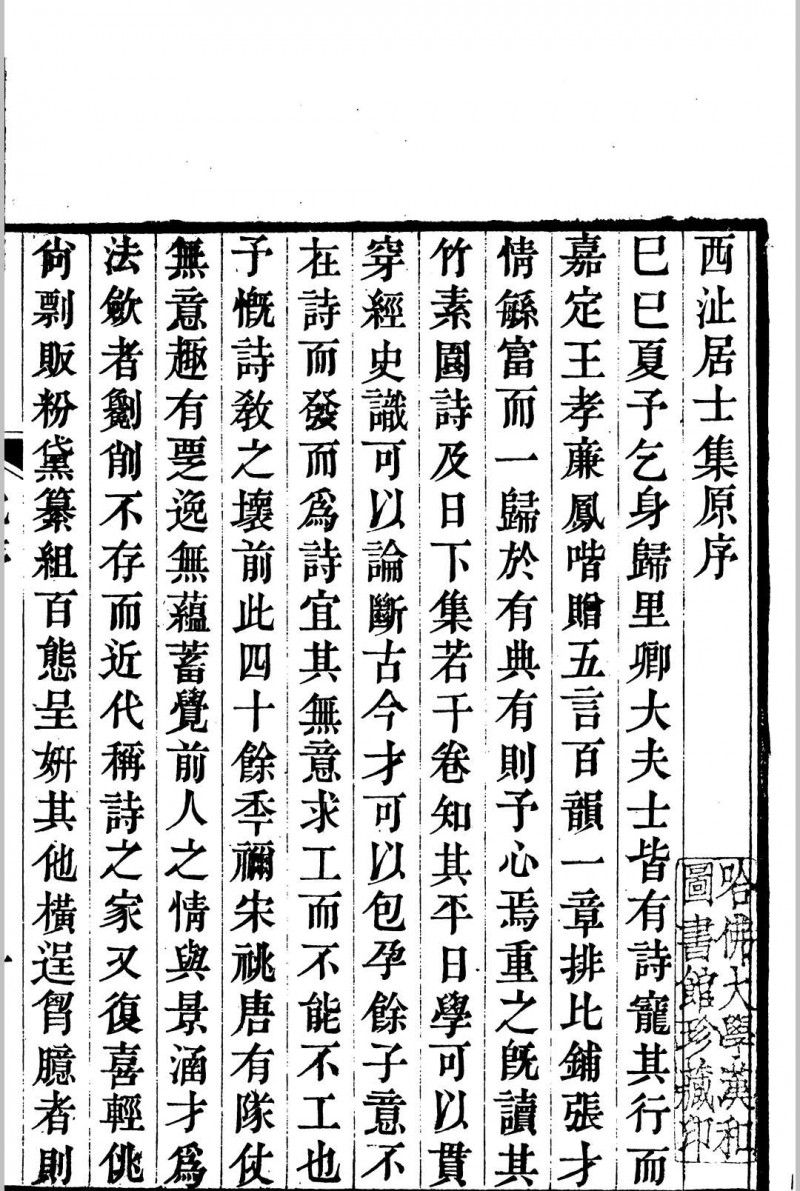 西沚居士集原序
己巳夏予乞身歸里卿大夫士皆有詩寵其行而
嘉定王孝亷鳳喈贈五言百韻一章排比鋪張才
情緐富而一歸於有典有則予心焉重之旣讀其
竹素園詩及日下集若干卷知其平日學可以貫
穿經史識可以論斷古今才可以包孕餘子意不
在詩而發而爲詩宜其無意求工而不能不工也
予慨詩敎之壞前此四十餘秊禰宋祧唐有隊仗
無意趣有㐮逸無蘊蓄覺前人之情與景涵才爲
法斂者劖削不存而近代稱詩之家又復喜輕佻
尙剽販粉黛纂組百態呈妍其他橫逞胷臆者則
哈佛大學漢和
圖書館珍藏印